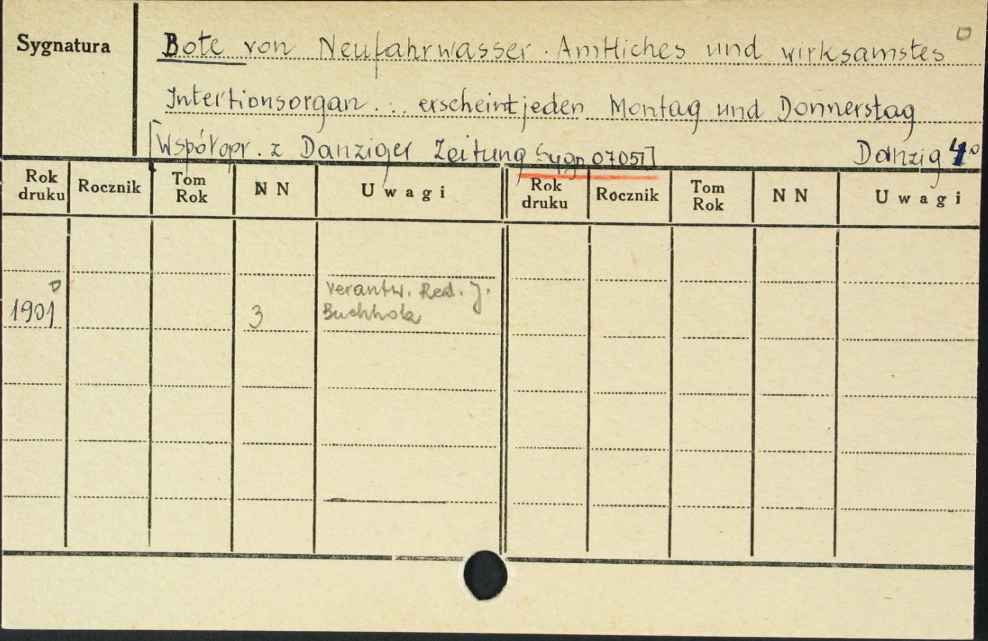 Sygnatura
Bote von Neufahrwasser. Amtliches und wirksamstes
Intertionsorgan... erscheint jeden Montag und Donnerstag
[Współopr. z Danziger Zeitung Sygn 07051]
Danzig 4°
Rok druku Rocznik Tom Rok NN Uwagi Rok druku Rocznik Tom Rok NN Uwagi
verantw. Red. J.
1901 3 Buchholz